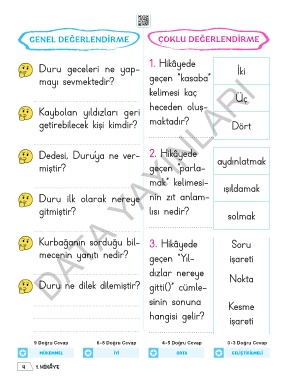 GENEL DEĞERLENDİRME
Duru geceleri ne yap-
mayı sevmektedir?
Kaybolan yıldızları geri
getirebilecek kişi kimdir?
Dedesi, Duru'ya ne ver-
miştir?
Duru ilk olarak nereye
gitmiştir?
Kurbağanın sorduğu bil-
mecenin yanıtı nedir?
Duru ne dilek dilemiştir?
ÇOKLU DEĞERLENDİRME
1. Hikâyede
geçen "kasaba"
kelimesi kaç
heceden oluş-
maktadır?
İki
Üç
Dört
2. Hikâyede
geçen "parla-
mak" kelimesi-
nin zıt anlam-
lısı nedir?
aydınlatmak
ışıldamak
solmak
3. Hikâyede
geçen "Yıl-
dızlar nereye
gitti()" cümle-
sinin sonuna
hangisi gelir?
Soru
işareti
Nokta
Kesme
işareti
DATA YAYINLARI
9 Doğru Cevap
6-8 Doğru Cevap
4-5 Doğru Cevap
0-3 Doğru Cevap
MÜKEMMEL
İYİ
ORTA
GELİŞTİRMELİ
4
1. HİKÂYE